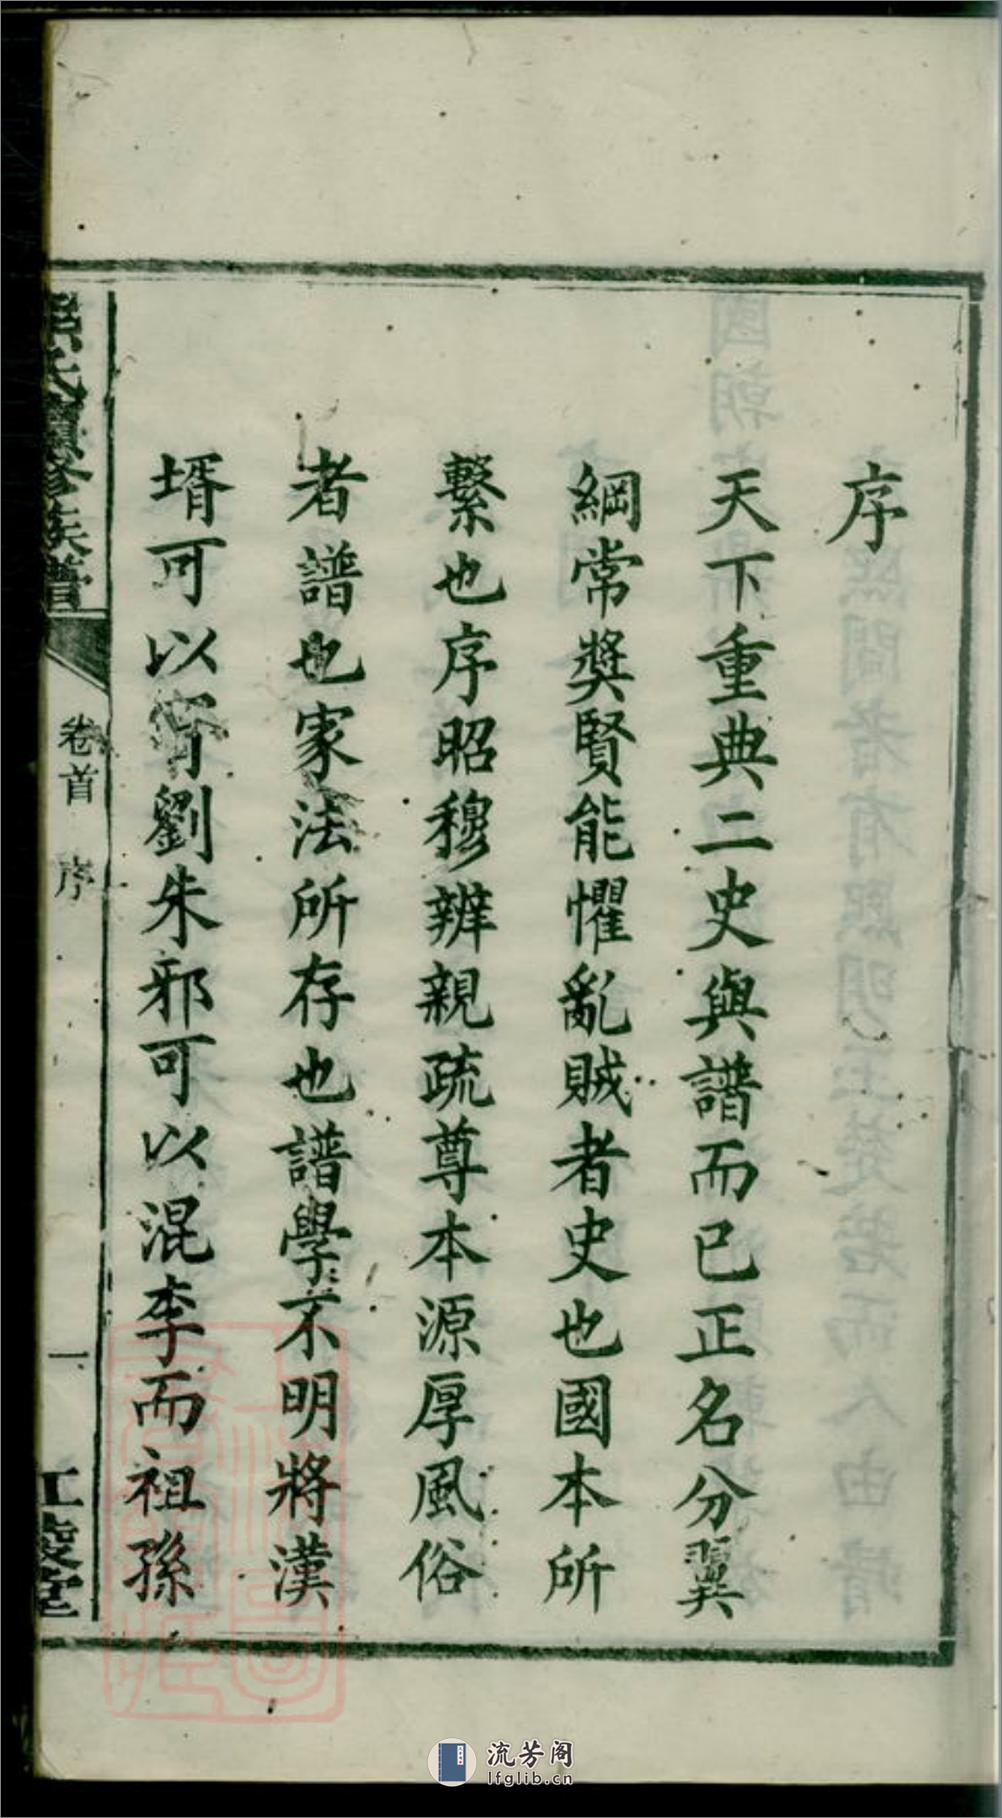 序
天下重典二史與譜而已正名分翼
綱常獎賢能懼亂賊者史也國本所
繫也序昭穆辨親疏尊本源厚風俗
者譜也家法所存也譜學不明將漢
壻可以冐劉朱邪可以混李而祖孫
氏續修族譜
卷首
序
一
江陵堂
流芳阁
lfglib.cn